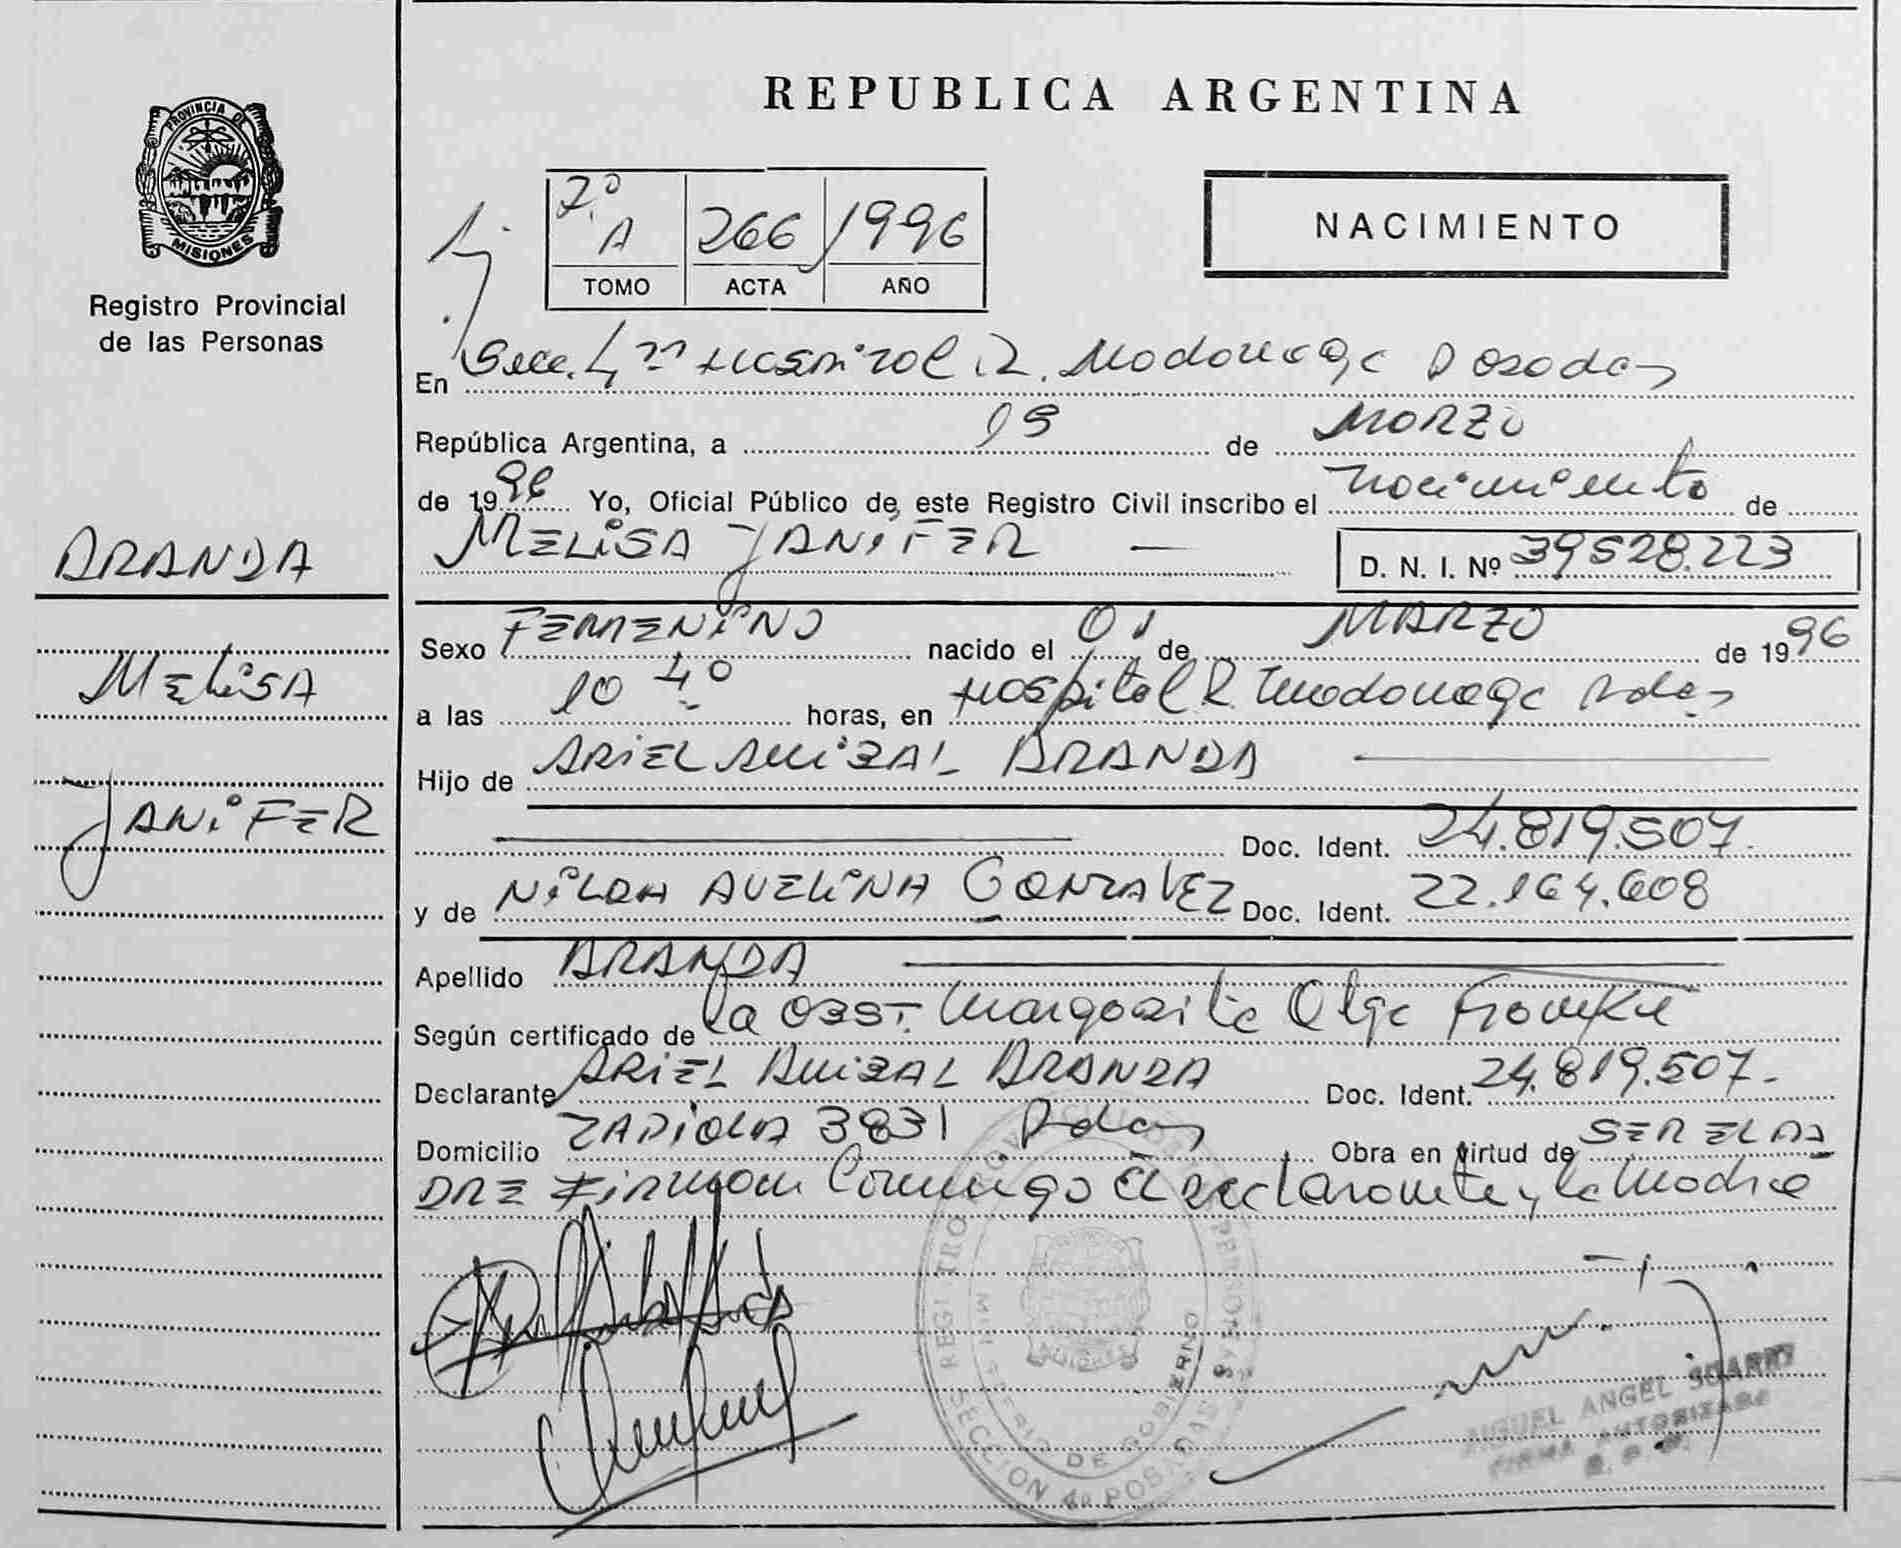 PROVINCIA DE
MISIONES
Registro Provincial
de las Personas
ARANDA
MELiSA
JANiFER
REPUBLICA ARGENTINA
2.º A 266 1996
TOMO ACTA AÑO
NACIMIENTO
En Secc. 4ª Hospital R. Madariaga Posadas
República Argentina, a 19 de MARZO
de 1996 Yo, Oficial Público de este Registro Civil inscribo el nacimiento de
MELiSA JANiFER — D. N. I. Nº 39528.223
Sexo FEMENiNO nacido el 01 de MARZO de 1996
a las 10 40 horas, en Hospital R. Madariaga Pdas
Hijo de ARiEL ANiBAL ARANDA
Doc. Ident. 24.819.507.
y de NiLDA AVELiNA GONZALEZ Doc. Ident. 22.164.608
Apellido ARANDA
Según certificado de La OBST. Margarita Olga
Declarante ARiEL ANiBAL ARANDA Doc. Ident. 24.819.507.-
Domicilio ZAPiOLA 3831 Pdas Obra en virtud de SER EL PA
DRE Firman Conmigo El declarante y la Madre
REGISTRO PROVINCIAL DE LAS PERSONAS
MINISTERIO DE GOBIERNO
MISIONES
SECCION 4a POSADAS
MIGUEL ANGEL
FIRMA AUTORIZADA